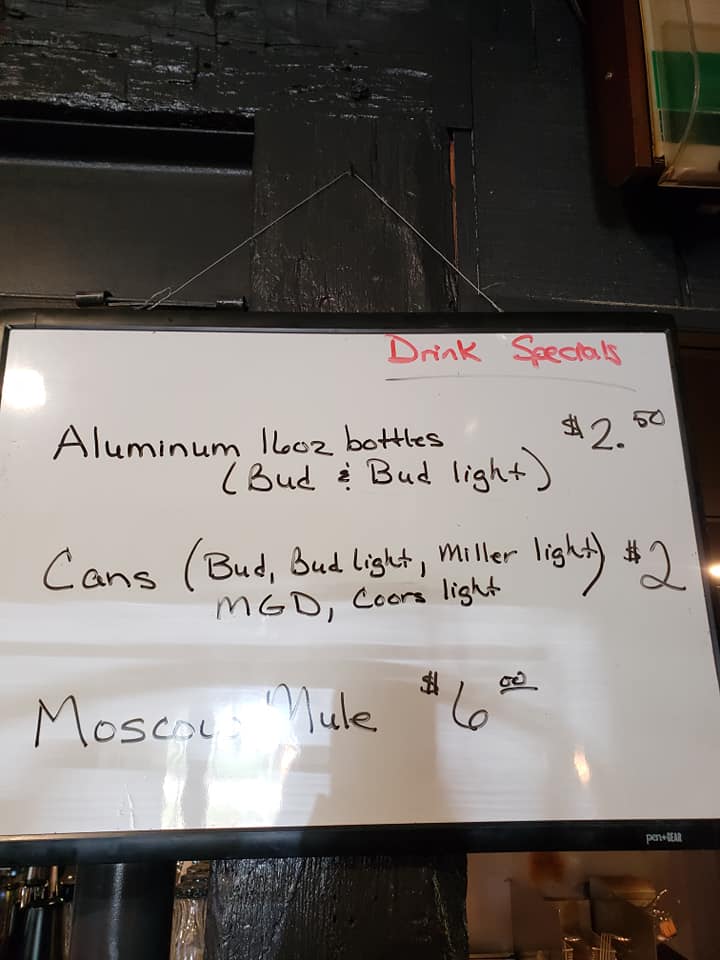 Drink Specials
Aluminum 16oz bottles $2.50
(Bud & Bud light)
Cans (Bud, Bud light, Miller light) $2
MGD, Coors light
Moscow Mule $6.00
pen+GEAR